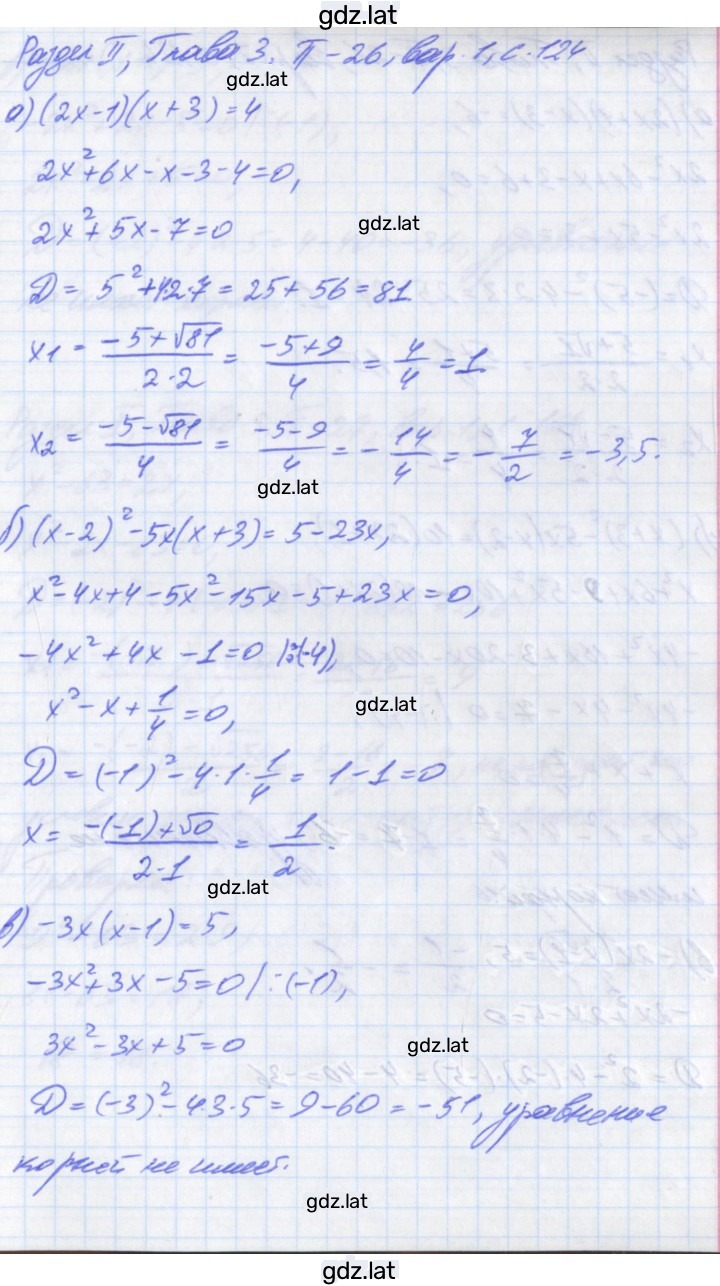 gdz.lat
Раздел II, Глава 3, П-26, вар. 1, с. 124
gdz.lat
а) (2x-1)(x+3)=4
2x²+6x-x-3-4=0,
gdz.lat
2x²+5x-7=0
D = 5²+4·2·7 = 25+56=81
x₁ = (-5+√81)/(2·2) = (-5+9)/4 = 4/4 = 1
x₂ = (-5-√81)/4 = (-5-9)/4 = -14/4 = -7/2 = -3,5.
gdz.lat
б) (x-2)²-5x(x+3)=5-23x,
x²-4x+4-5x²-15x-5+23x=0,
-4x²+4x-1=0 |:(-4),
gdz.lat
x²-x+1/4=0,
D = (-1)²-4·1·1/4 = 1-1=0
x = (-(-1)+√0)/(2·1) = 1/2.
gdz.lat
в) -3x(x-1)=5,
-3x²+3x-5=0 |:(-1),
3x²-3x+5=0
gdz.lat
D=(-3)²-4·3·5=9-60=-51, уравнение
корней не имеет.
gdz.lat
gdz.lat